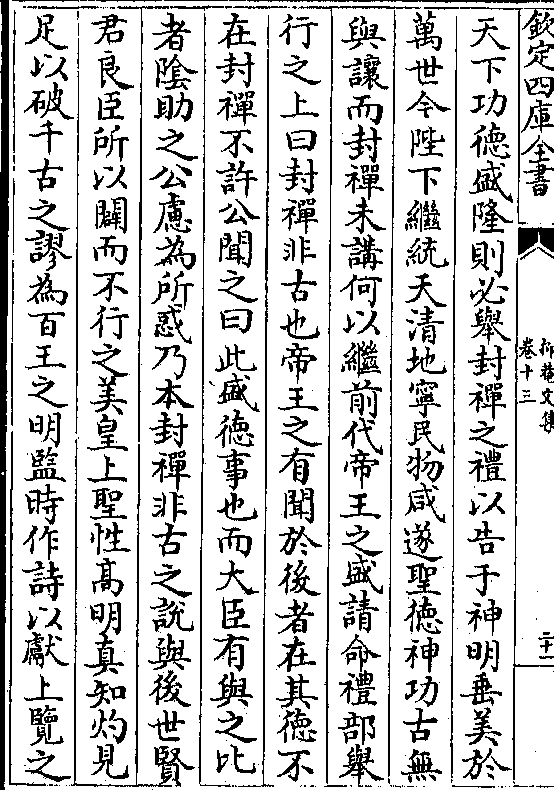 欽定四庫全書
抑菴文集
卷十三
二十一
天下功徳盛隆則必舉封禪之禮以告于神明垂美於
萬世今陛下繼統天清地寧民物咸遂聖徳神功古無
與讓而封禪未講何以繼前代帝王之盛請命禮部舉
行之上曰封禪非古也帝王之有聞於後者在其徳不
在封禪不許公聞之曰此盛徳事也而大臣有與之比
者陰助之公慮為所惑乃本封禪非古之說與後世賢
君良臣所以闢而不行之美皇上聖性髙明真知灼見
足以破千古之謬為百王之明監時作詩以獻上覽之